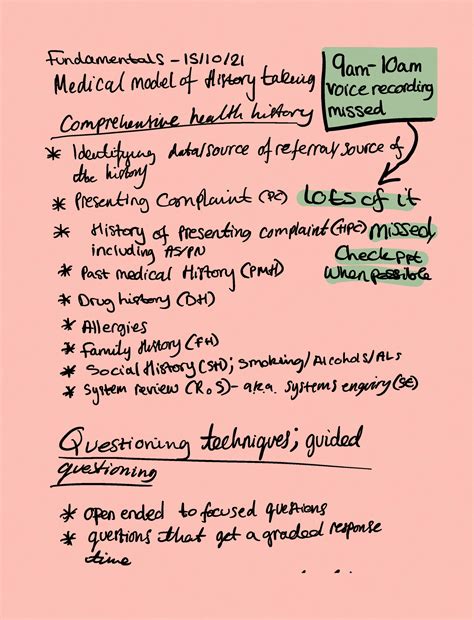 Fundamentals - 15/10/21
Medical model of History taking
9am-10am
voice recording
missed
Comprehensive health history
* Identifying data/source of referral/source of
the history
* Presenting Complaint (PC)
Lots of it
* History of presenting complaint (HPC)
missed,
including AS/PN
Check ppt
* Past medical History (PMH)
when possible
* Drug history (DH)
* Allergies
* Family History (FH)
* Social History (SH); Smoking/Alcohols/ALs
* System review (RoS)- a.k.a. systems enquiry (SE)
Questioning techniques; guided
questioning
* open ended to focused questions
* questions that get a graded response
time